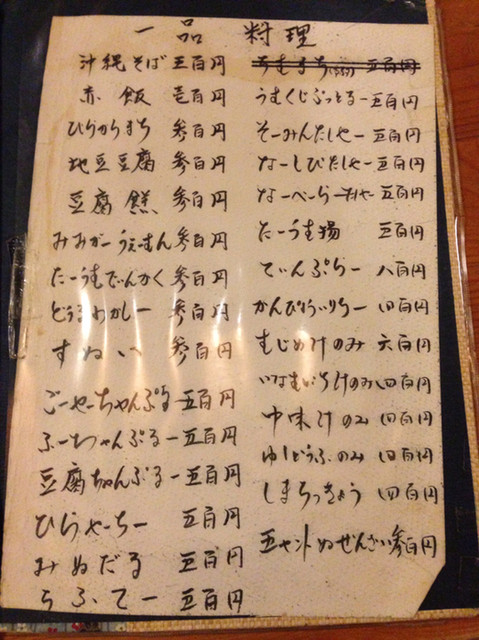 一品料理
沖縄そば 五百円
赤飯 壱百円
ひらからまち 参百円
地豆豆腐 参百円
豆腐餻 参百円
みみがーうえーむん 参百円
たーうむでぃんかく 参百円
どぅるわかしー 参百円
すぬい 参百円
ごーやーちゃんぷるー 五百円
ふーちゃんぷるー 五百円
豆腐ちゃんぷるー 五百円
ひらやーちー 五百円
みぬだる 五百円
らふてー 五百円
五百円
うむくじぷっとるー 五百円
そーみんたしやー 五百円
なーしびたしやー 五百円
なーべーらーたしやー 五百円
たーうむ揚 五百円
てぃんぷらー 八百円
かんぴらぅいりちー 四百円
むじぬ汁のみ 六百円
いなむどぅち汁のみ 四百円
中味汁のみ 四百円
ゆしどうふのみ 四百円
しまらっきょう 四百円
ぬぜんざい 参百円